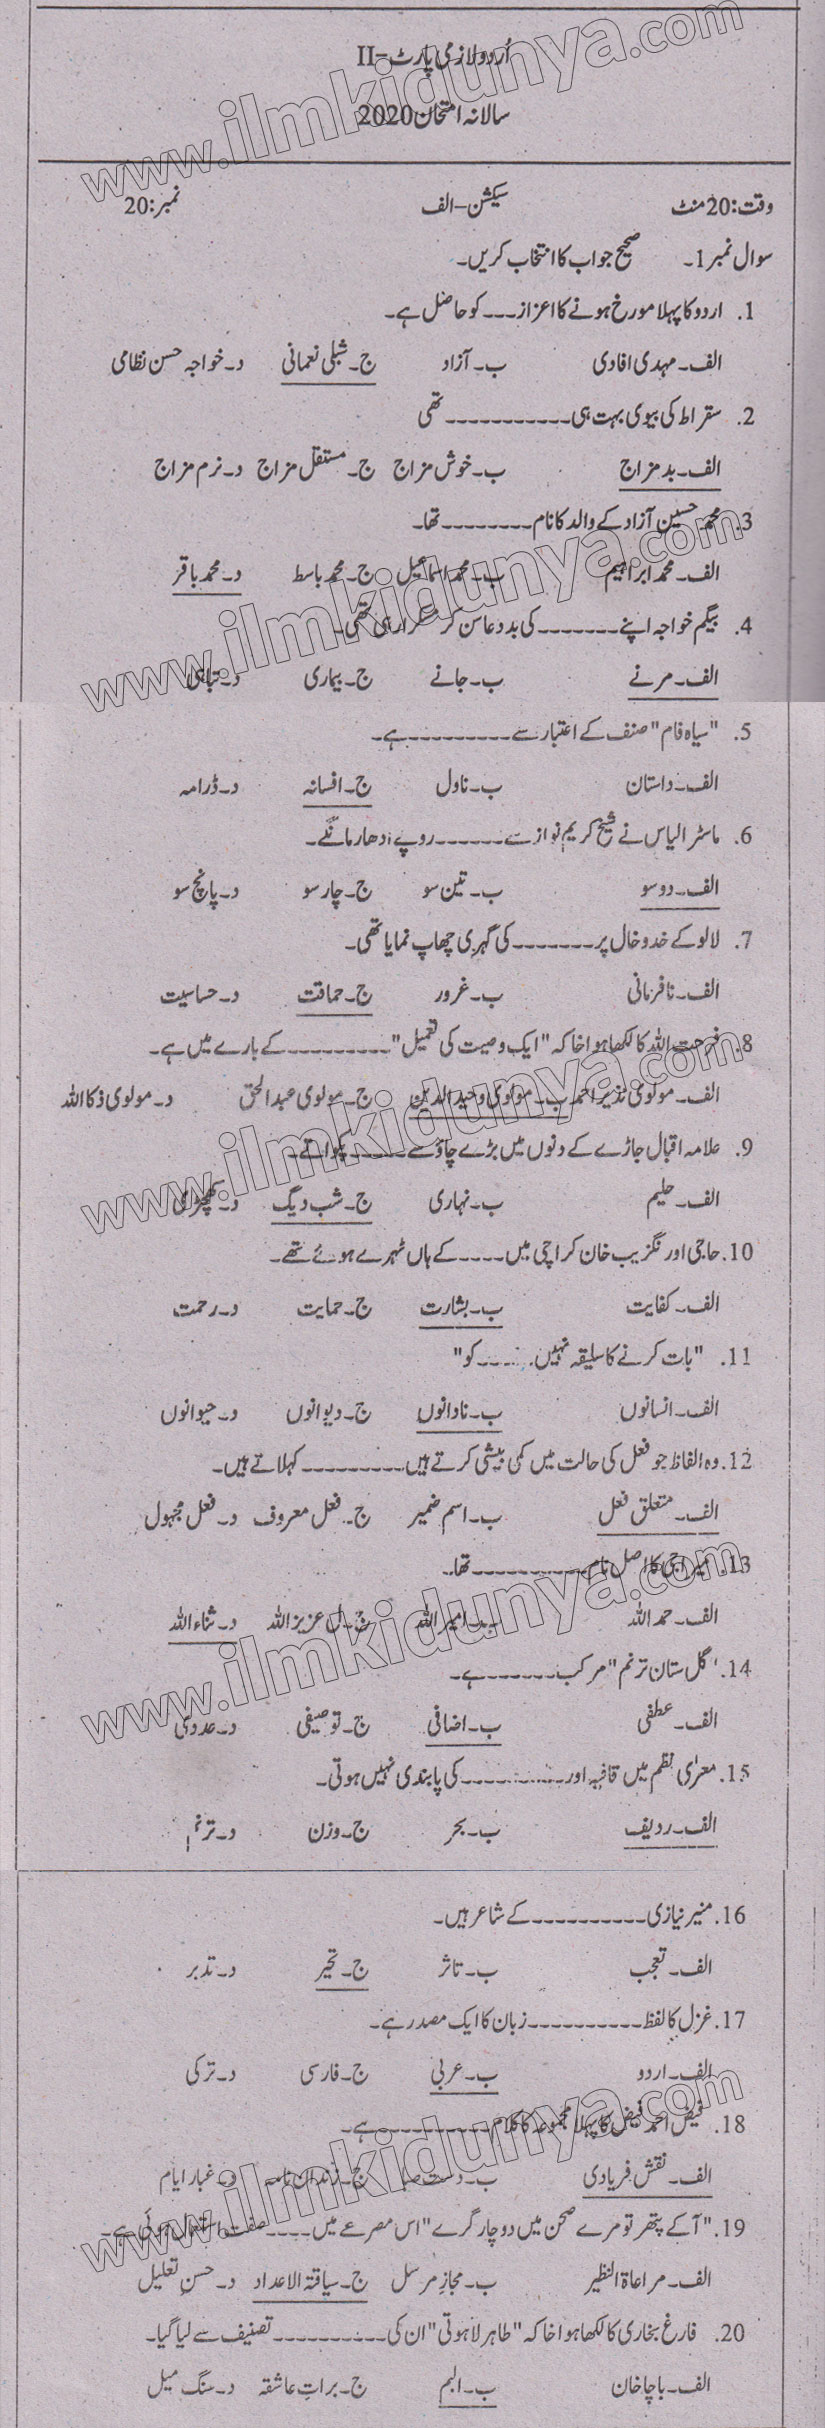 اُردو لازمی پارٹ-II
سالانہ امتحان 2020
وقت: 20 منٹ سیکشن-الف نمبر: 20
سوال نمبر 1۔ صحیح جواب کا انتخاب کریں۔
1. اردو کا پہلا مورخ ہونے کا اعزاز۔۔۔ کو حاصل ہے۔
الف۔ مہدی افادی ب۔ آزاد ج۔ شبلی نعمانی د۔ خواجہ حسن نظامی
2. سقراط کی بیوی بہت ہی۔۔۔۔۔۔۔۔۔۔۔ تھی
الف۔ بدمزاج ب۔ خوش مزاج ج۔ مستقل مزاج د۔ نرم مزاج
3. محمد حسین آزاد کے والد کا نام۔۔۔۔۔۔۔۔ تھا۔
الف۔ محمد ابراہیم ب۔ محمد اسماعیل ج۔ محمد باسط د۔ محمد باقر
4. بیگم خواجہ اپنے۔۔۔۔۔۔۔ کی بددعا سن کر مسکرا رہی تھی۔
الف۔ مرنے ب۔ جانے ج۔ بیماری د۔ تباہی
5. "سیاہ فام" صنف کے اعتبار سے۔۔۔۔۔۔۔۔۔ ہے۔
الف۔ داستان ب۔ ناول ج۔ افسانہ د۔ ڈرامہ
6. ماسٹر الیاس نے شیخ کریم نواز سے۔۔۔۔۔۔ روپے ادھار مانگے۔
الف۔ دو سو ب۔ تین سو ج۔ چار سو د۔ پانچ سو
7. لالو کے خدوخال پر۔۔۔۔۔۔۔ کی گہری چھاپ نمایا تھی۔
الف۔ نافرمانی ب۔ غرور ج۔ حماقت د۔ حساسیت
8. فرحت اللہ کا لکھا ہوا خاکہ "ایک وصیت کی تعمیل"۔۔۔۔۔۔۔۔ کے بارے میں ہے۔
الف۔ مولوی نذیر احمد ب۔ مولوی وحید الدین ج۔ مولوی عبدالحق د۔ مولوی ذکا اللہ
9. علامہ اقبال جاڑے کے دنوں میں بڑے چاؤ سے۔۔۔۔۔ پکواتے۔
الف۔ حلیم ب۔ نہاری ج۔ شب دیگ د۔ کھچڑی
10. حاجی اورنگزیب خان کراچی میں۔۔۔۔ کے ہاں ٹھہرے ہوئے تھے۔
الف۔ کفایت ب۔ بشارت ج۔ حمایت د۔ رحمت
11. "بات کرنے کا سلیقہ نہیں۔۔۔۔۔ کو"
الف۔ انسانوں ب۔ نادانوں ج۔ دیوانوں د۔ حیوانوں
12. وہ الفاظ جو فعل کی حالت میں کمی بیشی کرتے ہیں۔۔۔۔۔۔۔۔۔ کہلاتے ہیں۔
الف۔ متعلق فعل ب۔ اسم ضمیر ج۔ فعل معروف د۔ فعل مجہول
13. میرا جی کا اصل نام۔۔۔۔۔۔۔۔۔۔۔ تھا۔
الف۔ حمد اللہ ب۔ امیر اللہ ج۔ عزیز اللہ د۔ ثناء اللہ
14. "گل ستان ترنم" مرکب۔۔۔۔۔۔ ہے۔
الف۔ عطفی ب۔ اضافی ج۔ توصیفی د۔ عددی
15. معرٰی نظم میں قافیہ اور۔۔۔۔۔۔۔۔۔ کی پابندی نہیں ہوتی۔
الف۔ ردیف ب۔ بحر ج۔ وزن د۔ ترنم
16. منیر نیازی۔۔۔۔۔۔۔۔۔۔ کے شاعر ہیں۔
الف۔ تعجب ب۔ تاثر ج۔ تحیر د۔ تدبر
17. غزل کا لفظ۔۔۔۔۔۔۔۔۔۔ زبان کا ایک مصدر ہے۔
الف۔ اردو ب۔ عربی ج۔ فارسی د۔ ترکی
18. فیض احمد فیض کا پہلا مجموعہ کلام۔۔۔۔۔۔۔۔۔ ہے۔
الف۔ نقش فریادی ب۔ دست صبا ج۔ زندان نامہ د۔ غبار ایام
19. "آ کے پتھر تو مرے صحن میں دو چار گرے" اس مصرعے میں۔۔۔۔ صفت استعمال ہوئی ہے۔
الف۔ مراعاۃ النظیر ب۔ مجاز مرسل ج۔ سیاقۃ الاعداد د۔ حسنِ تعلیل
20. فارغ بخاری کا لکھا ہوا خاکہ "طاہر لاہوتی" ان کی۔۔۔۔۔۔۔۔۔ تصنیف سے لیا گیا۔
الف۔ باچا خان ب۔ البم ج۔ براتِ عاشقہ د۔ سنگ میل
www.ilmkidunya.com
www.ilmkidunya.com
www.ilmkidunya.com
www.ilmkidunya.com
www.ilmkidunya.com